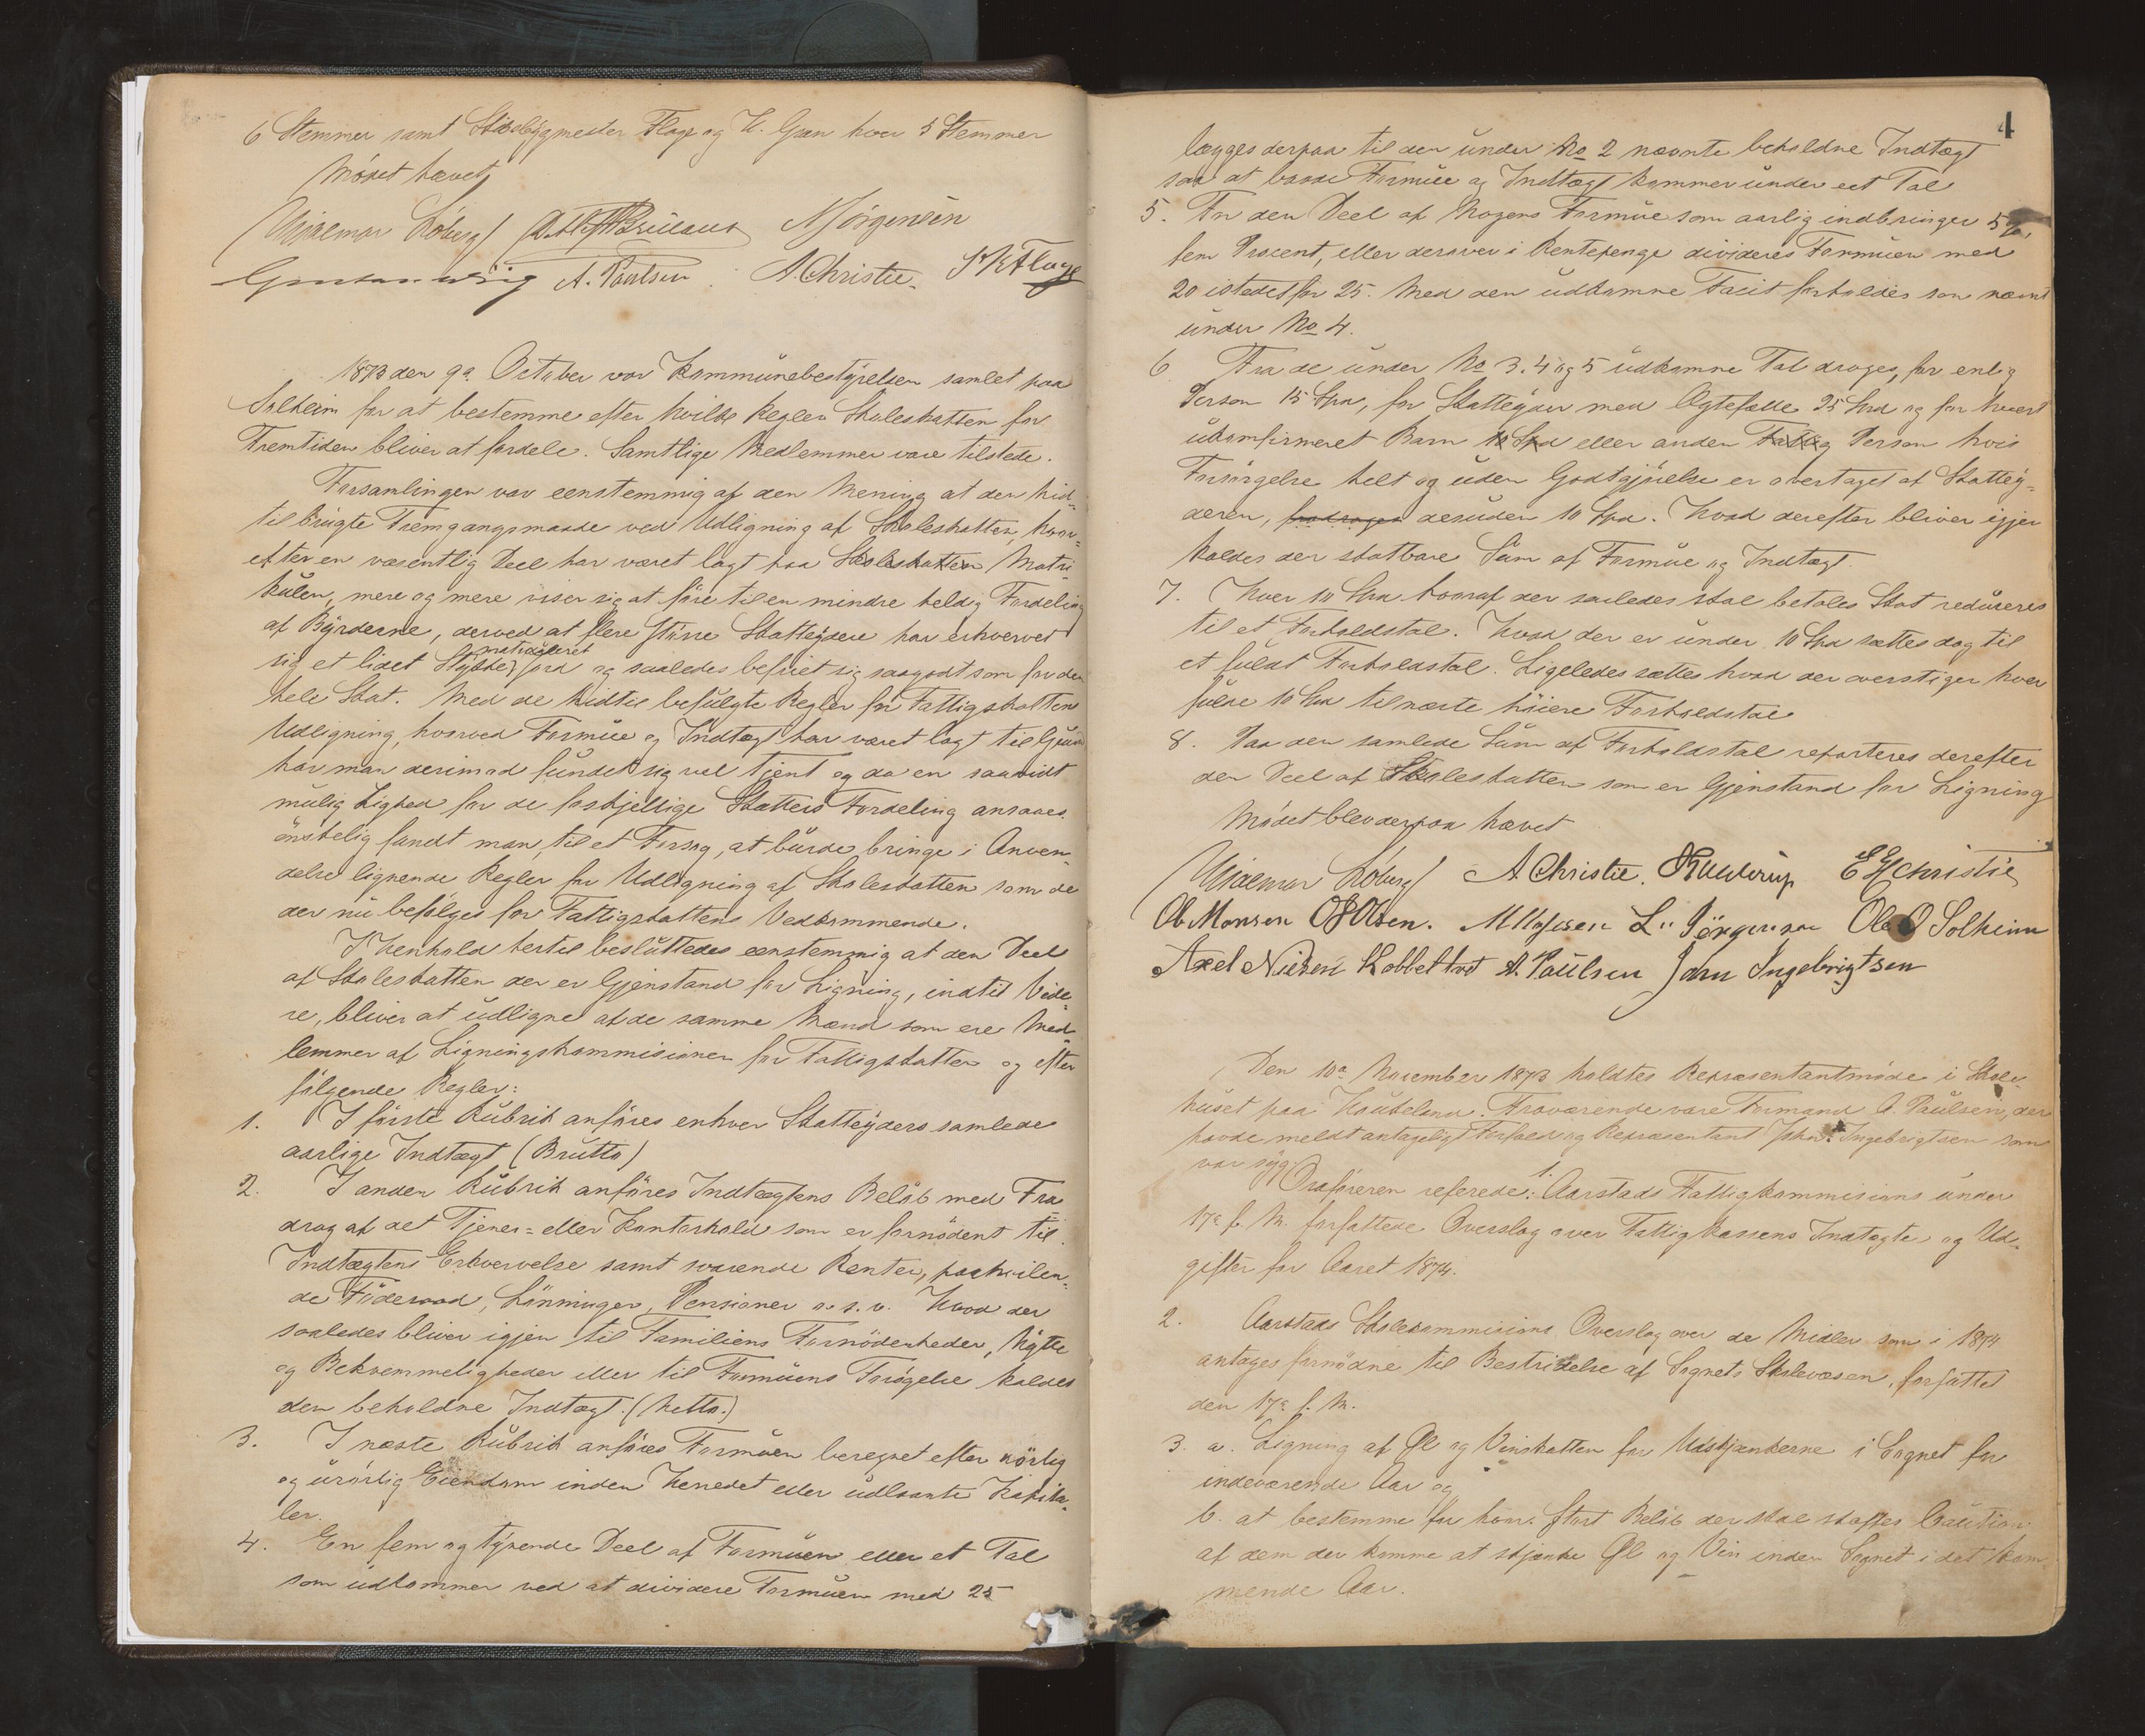 6 Stemmer samt Skibsbygmester Flage og H. Gran hver 5 Stemmer
Mødet hævet
Hjalmar Løberg Jörgensen
Gustav Wiig A. Poulsen A. Christie. Flage
1873 den 9de October var Kommunebestyrelsen samlet paa
Solheim for at bestemme efter hvilke Regler Skoleskatten for
Fremtiden bliver at fordele. Samtlige Medlemmer vare tilstede.
Forsamlingen var eenstemmig af den Mening at den hid-
til brugte Fremgangsmaade ved Udligning af Skoleskatten, hvor-
efter en væsentlig Deel har været lagt paa Skoleskatten Matri-
kulen, mere og mere viser sig at føre til en mindre heldig Fordeling
af Byrderne, derved at flere større Skatteydere har erhvervet
sig et lidet Stykke matriculeret Jord og saaledes befriet sig saagodtsom for den
hele Skat. Med de hidtil befulgte Regler for Fattigskattens
Udligning, hvorved Formue og Indtægt har været lagt til Grund
har man derimod fundet sig vel tjent og da en saavidt
mulig Lighed for de forskjellige Skatters Fordeling ansaaes
ønskelig fandt man, til et Forsøg, at burde bringe i Anven-
delse lignende Regler for Udligning af Skoleskatten som de
der nu befølges for Fattigskattens Vedkommende.
I Henhold hertil besluttedes eenstemmig at den Deel
af Skoleskatten der er Gjenstand for Ligning, indtil Vide-
re, bliver at udligne af de samme Mænd som ere Med-
lemmer af Ligningskommisionen for Fattigskatten og efter
følgende Regler:
1. I første Rubrik anføres enhver Skatteyders samlede
aarlige Indtægt (Brutto)
2. I anden Rubrik anføres Indtægtens Beløb med Fra-
drag af det Tjener- eller Kontorhold som er fornødent til
Indtægtens Erhvervelse samt svarende Renter, paahvilen-
de Føderaad, Lønninger, Pensioner o. s. v. Hvad der
saaledes bliver igjen til Familiens Fornødenheder, Nytte
og Bekvemmeligheder eller til Formuens Forøgelse kaldes
den beholdne Indtægt. (Netto.)
3. I næste Rubrik anføres Formuen beregnet efter rørlig
og urørlig Eiendom inden Herredet eller udlaante Kapita-
ler.
4. En fem og tyvende Deel af Formuen eller et Tal
som udkommer ved at dividere Formuen med 25
4
lægges derpaa til den under No 2 nævnte beholdne Indtægt
saa at baade Formue og Indtægt kommer under eet Tal
5. For den Deel af Nogens Formue som aarlig indbringer 5%,
fem Procent, eller derover i Rentepenge divideres Formuen med
20 istedetfor 25. Med den udkomne Facit forholdes som nævnt
under No 4.
6 Fra de under No 3. 4 og 5 udkomne Tal drages, for enlig
Person 15 Spd, for Skatteyder med Ægtefælle 25 Spd og for hvert
ukonfirmeret Barn 10 Spd eller anden Fattig Person hvis
Forsørgelse helt og uden Godtgjørelse er overtaget af Skattey-
deren, fradrages desuden 10 Spd. Hvad derefter bliver igjen
kaldes den skatbare Sum af Formue og Indtægt.
7. Hver 10 Spd hvoraf der saaledes skal betales Skat reduceres
til et Forholdstal. Hvad der er under 10 Spd sættes dog til
et fuldt Forholdstal. Ligeledes sættes hvad der overstiger hver
fulde 10 Spd til næste høiere Forholdstal
8. Paa den samlede Sum af Forholdstal reparteres derefter
den Deel af Skoleskatten som er Gjenstand for Ligning
Mødet blev derpaa hævet
Hjalmar Løberg A Christie. E H Christie
Ob Monsen O Olsen. L. Jörgensen Ole O Solheim
Axel Nielsen Kobbeltvet A. Paulsen John Ingebrigtsen
Den 10de November 1873 holdtes Repræsentantmøde i Skole-
huset paa Haukeland. Fraværende vare Formand A. Paulsen, der
havde meldt antageligt Forfald og Repræsentant John Ingebrigtsen som
var syg
Ordføreren referede: 1. Aarstads Fattigkommisions under
17de f. M. forfattede Overslag over Fattigkassens Indtægter og Ud-
gifter for Aaret 1874.
2. Aarstads Skolekommisions Overslag over de Midler som i 1874
antages fornødne til Bestridelse af Sognets Skolevæsen, forfattet
den 17de f. M.
3. a. Ligning af Øl og Vinskatten for Udskjænkerne i Sognet for
indeværende Aar og
b. at bestemme for hvor stort Beløb der skal skaffes Caution
af dem der komme at skjænke Øl og Vin inden Sognet i det kom-
mende Aar.